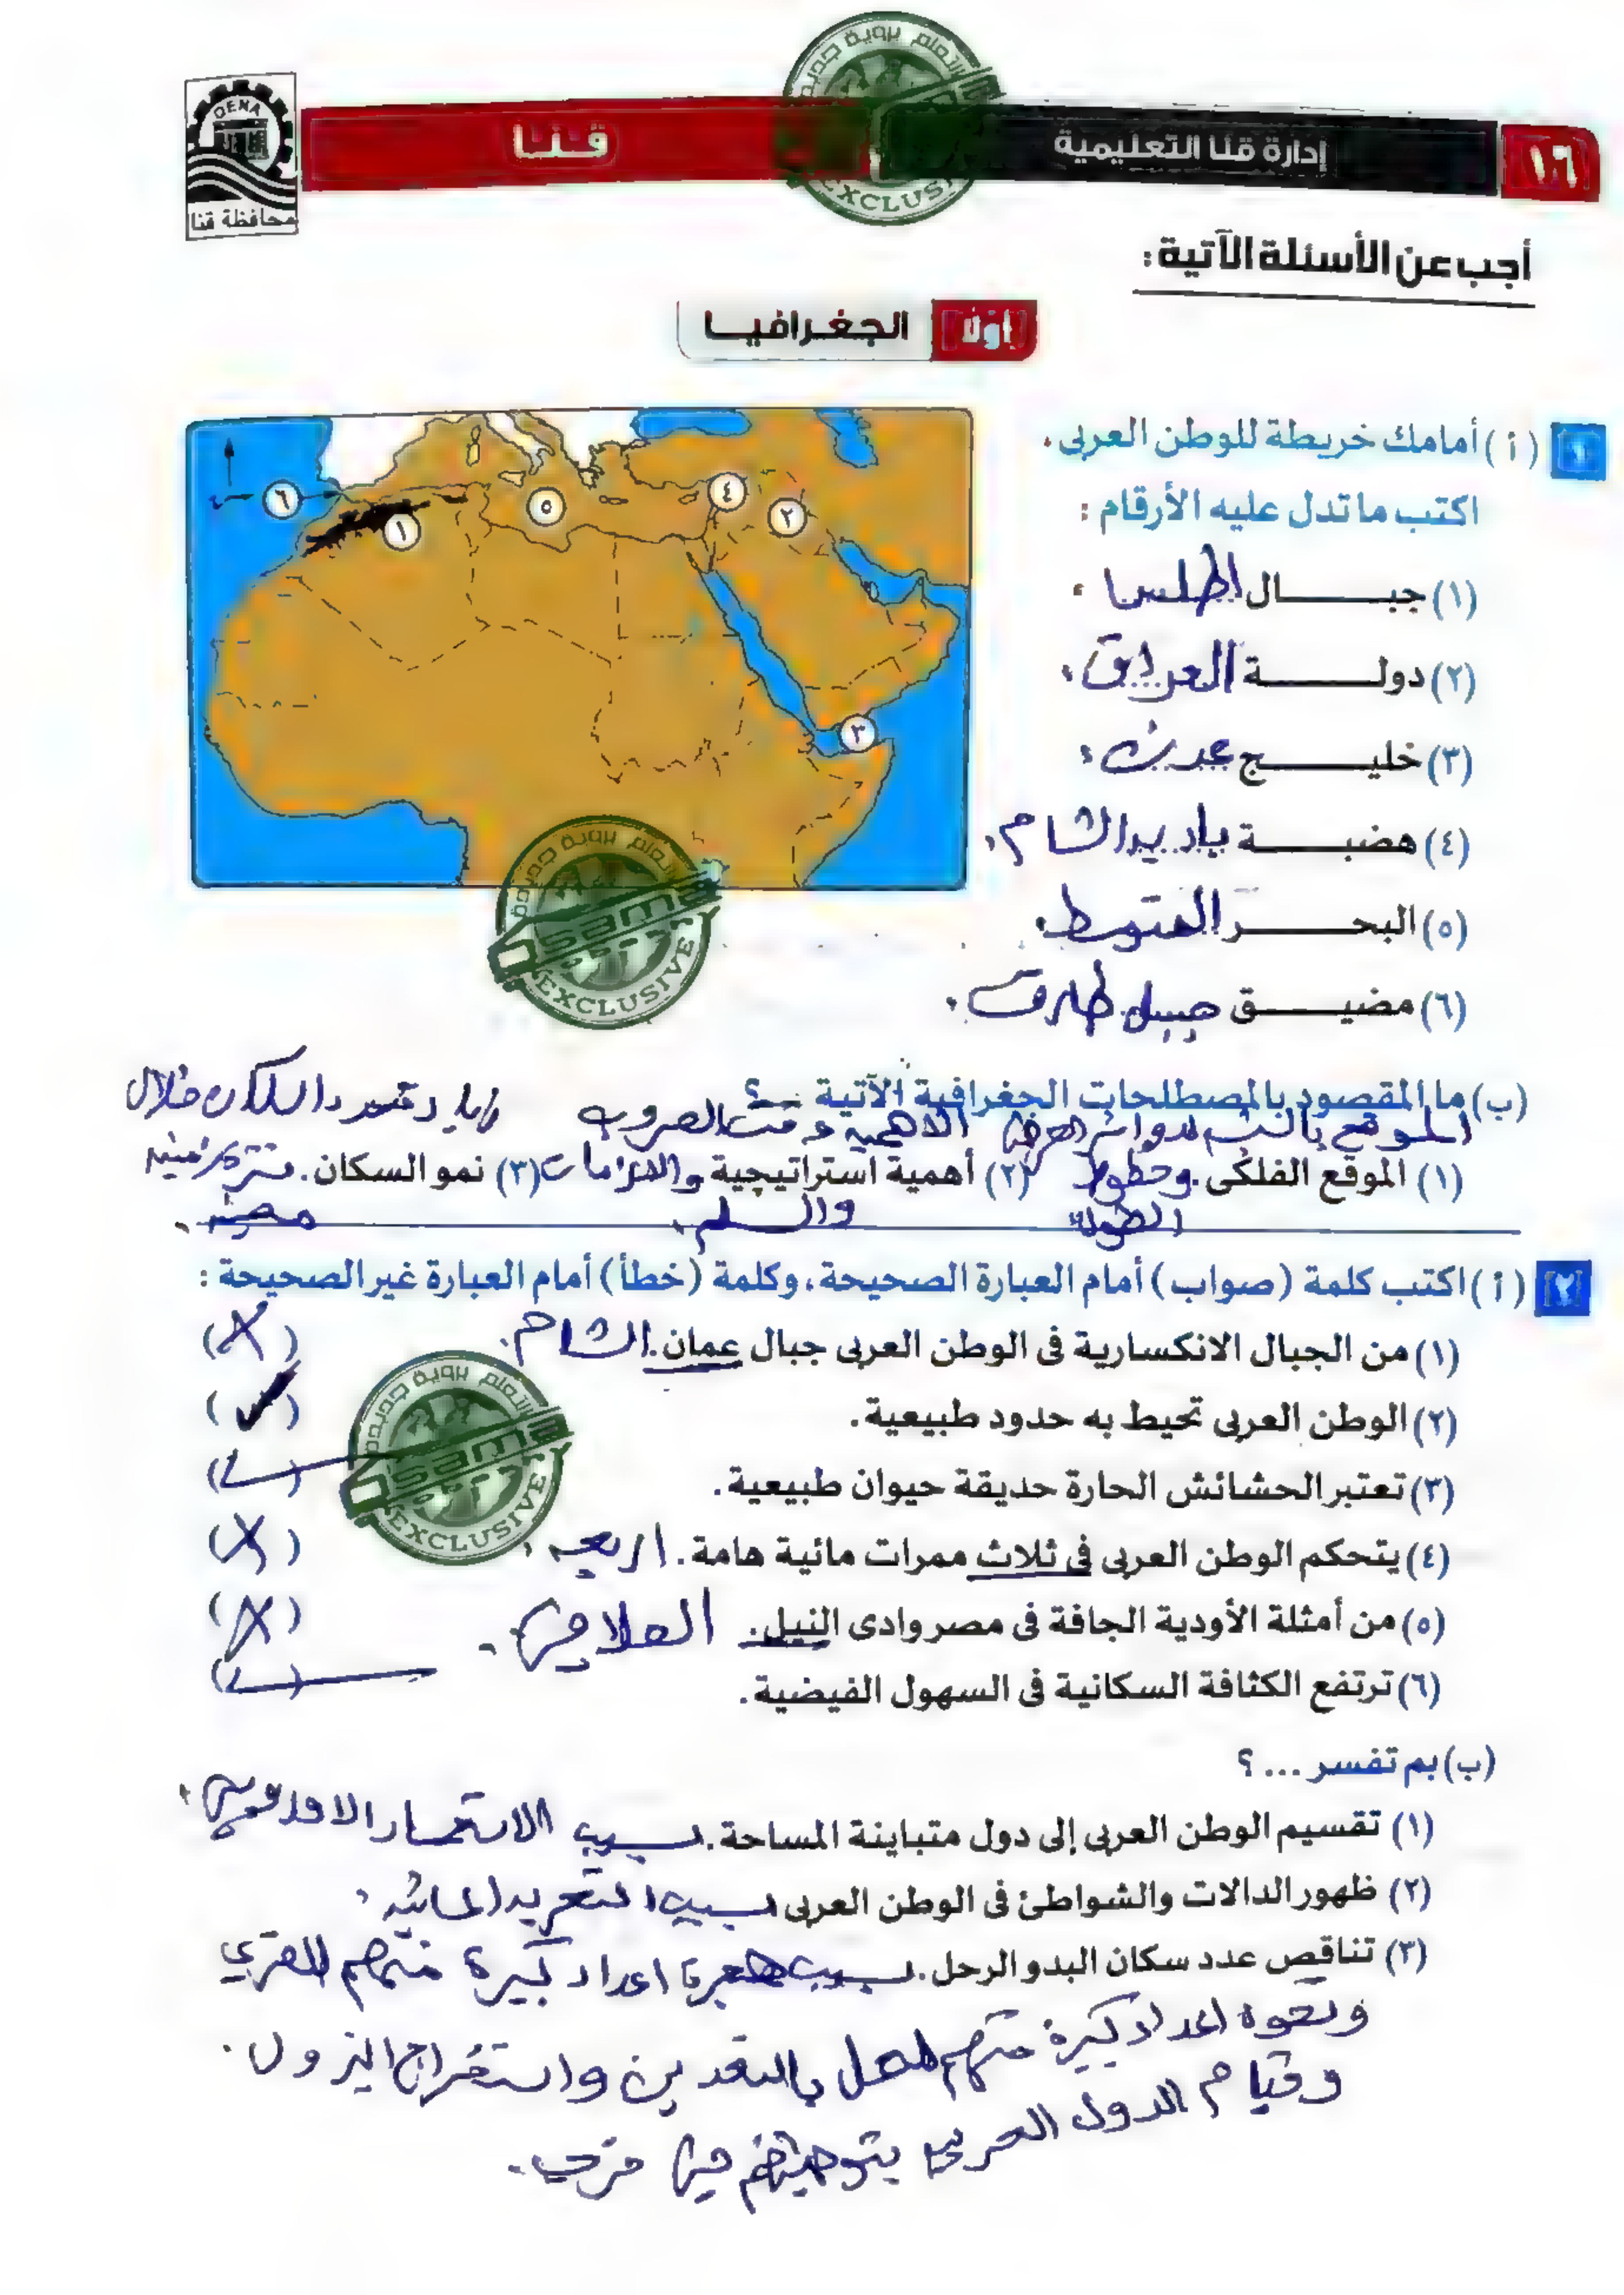 ١٦ إدارة قنا التعليمية قنا
QENA
محافظة قنا
أجب عن الأسئلة الآتية :
أولاً الجغرافيا
١ (أ) أمامك خريطة للوطن العربى .
اكتب ما تدل عليه الأرقام :
(١) جبال اطلس .
(٢) دولة العراق .
(٣) خليج عدن .
(٤) هضبة بادية الشام .
(٥) البحر المتوسط .
(٦) مضيق جبل طارق .
٦ ١ ٥ ٤ ٢ ٣
(ب) ما المقصود بالمصطلحات الجغرافية الآتية ... ؟
الموقع بالنسبة لدوائر العرض الاهمية وقت الحروب زيادة عدد السكان خلال
(١) الموقع الفلكى . وخطوط (٢) أهمية استراتيجية والازمات (٣) نمو السكان . فترة زمنية
الطول والسلم . معينة .
٢ (أ) اكتب كلمة (صواب) أمام العبارة الصحيحة ، وكلمة (خطأ) أمام العبارة غير الصحيحة :
(١) من الجبال الانكسارية فى الوطن العربى جبال عمان . الشام . (X)
(٢) الوطن العربى تحيط به حدود طبيعية . (✓)
(٣) تعتبر الحشائش الحارة حديقة حيوان طبيعية . (✓)
(٤) يتحكم الوطن العربى فى ثلاث ممرات مائية هامة . اربعة . (X)
(٥) من أمثلة الأودية الجافة فى مصر وادى النيل . العلاقى . (X)
(٦) ترتفع الكثافة السكانية فى السهول الفيضية . (✓)
(ب) بم تفسر ... ؟
(١) تقسيم الوطن العربى إلى دول متباينة المساحة . بسبب الاستعمار الاوروبى .
(٢) ظهور الدالات والشواطئ فى الوطن العربى بسبب التعرية المائية .
(٣) تناقص عدد سكان البدو الرحل . بسبب هجرة اعداد كبيرة منهم للقري
اعداد كبيرة منهم للعمل بالتعدين واستخراج البترول .
وقيام الدول العربية بتوطينهم فى قرى .
sama
EXCLUSIVE